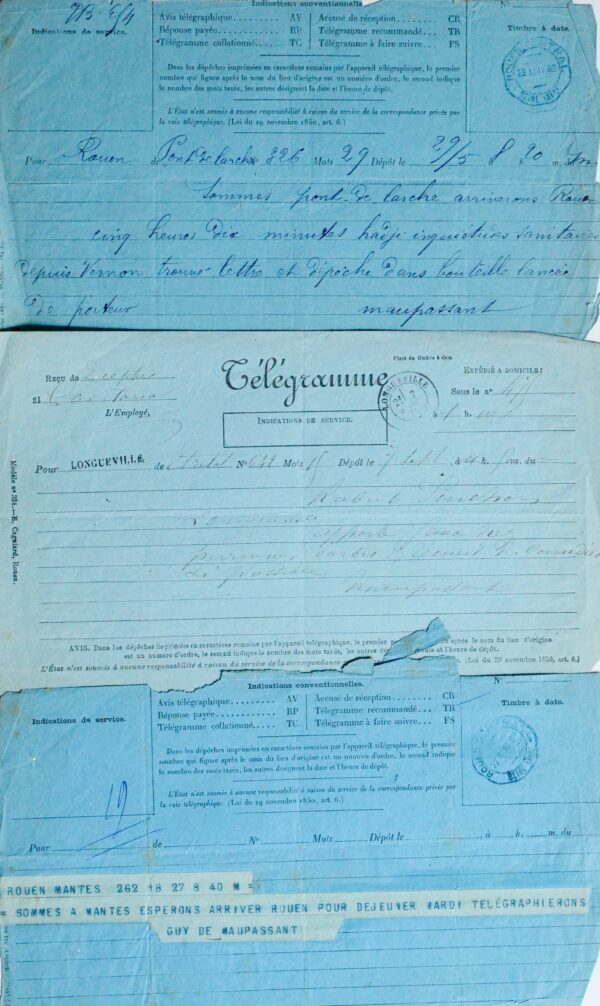 Indications conventionnelles.
Indications de service.
Avis télégraphique AV
Réponse payée BP
Télégramme collationné TC
Accusé de réception CR
Télégramme recommandé TR
Télégramme à faire suivre FS
N°
Timbre à date.
Dans les dépêches imprimées en caractères romains par l'appareil télégraphique, le premier
nombre qui figure après le nom du lieu d'origine est un numéro d'ordre, le second indique
le nombre des mots taxés, les autres désignent la date et l'heure de dépôt.
L'État n'est soumis à aucune responsabilité à raison du service de la correspondance privée par
la voie télégraphique. (Loi du 29 novembre 1850, art. 6.)
Pour Rouen de Pont de larche 326 Mots 29 Dépôt le 29/5 8 h 20 m.
Sommes pont de larche arriverons Rouen
cinq heures dix minutes hadji inquiétudes sanitaires
depuis Vernon trouvé lettre et dépêche dans bouteille lancée
de porteur maupassant
Reçu de Dieppe
fil
L'Employé,
Télégramme
INDICATIONS DE SERVICE.
Place du timbre à date.
LONGUEVILLE
EXPÉDIÉ A DOMICILE:
Sous le n°
à h.
Pour LONGUEVILLE de N° 642 Mots 15 Dépôt le 7 Sept à 4 h. m. du
Robert Pinchon
Longueville
apporte
recueil de
si possible
maupassant
Modèle n° 324.—E. Cagniard, Rouen.
AVIS. Dans les dépêches imprimées en caractères romains par l'appareil télégraphique, le premier après le nom du lieu d'origine
est un numéro d'ordre, le second indique le nombre des mots taxés, les autres et l'heure de dépôt.
L'État n'est soumis à aucune responsabilité à raison du service de la correspondance (Loi du 29 novembre 1850, art. 6.)
Indications conventionnelles.
Indications de service.
Avis télégraphique AV
Réponse payée BP
Télégramme collationné TC
Accusé de réception CR
Télégramme recommandé TR
Télégramme à faire suivre FS
N°
Timbre à date.
Dans les dépêches imprimées en caractères romains par l'appareil télégraphique, le premier
nombre qui figure après le nom du lieu d'origine est un numéro d'ordre, le second indique
le nombre des mots taxés, les autres désignent la date et l'heure de dépôt.
L'État n'est soumis à aucune responsabilité à raison du service de la correspondance privée par
la voie télégraphique. (Loi du 29 novembre 1850, art. 6.)
Pour de N° Mots Dépôt le à h. m. du
ROUEN MANTES 262 18 27 8 40 M =
= SOMMES A MANTES ESPERONS ARRIVER ROUEN POUR DEJEUNER MARDI TELÉGRAPHIERONS
GUY DE MAUPASSANT